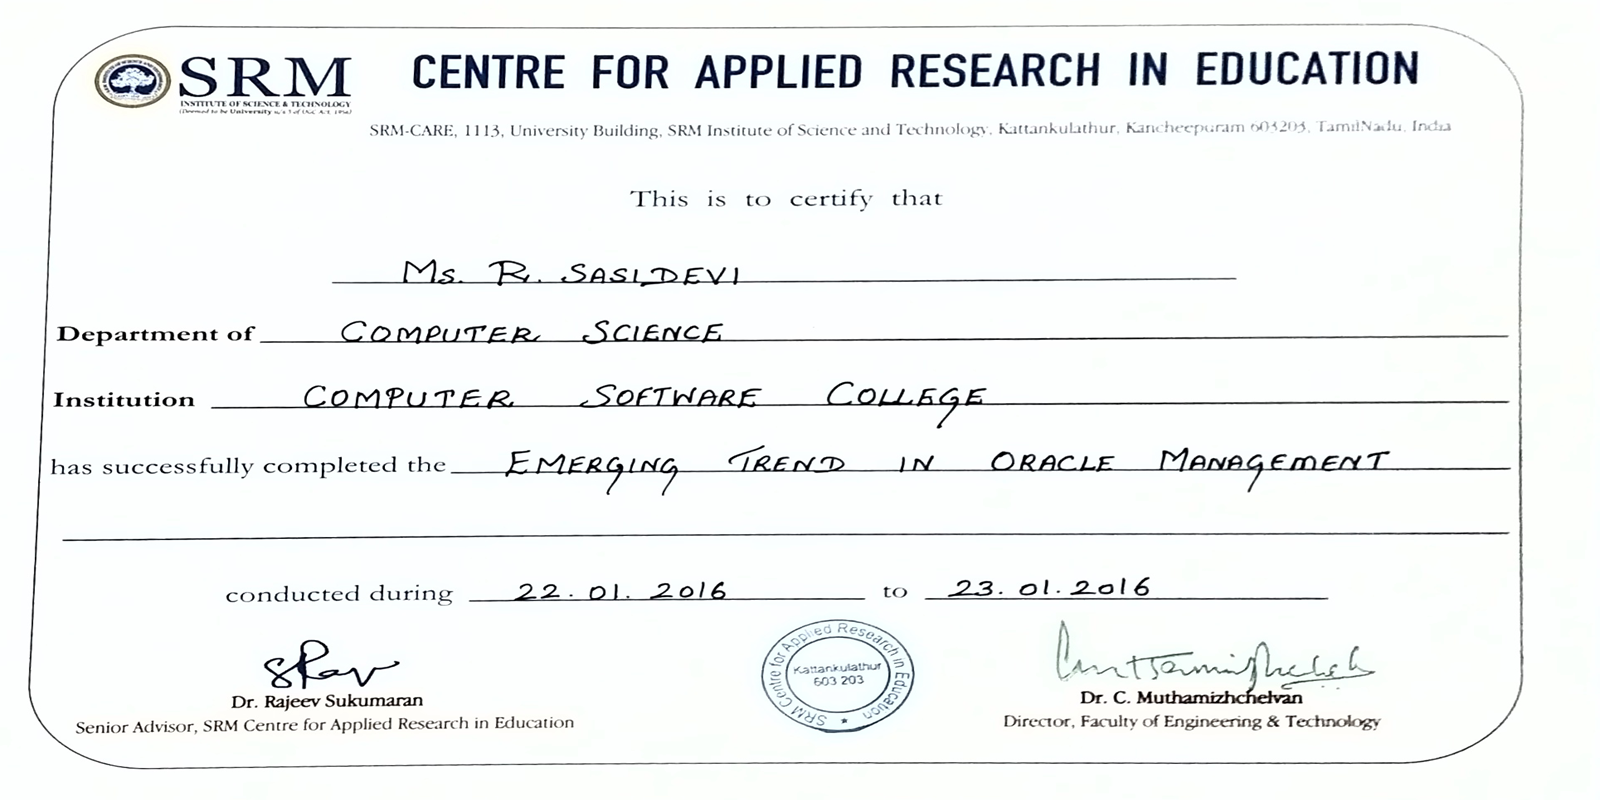 SRM
INSTITUTE OF SCIENCE & TECHNOLOGY
(Deemed to be University u/s 3 of UGC Act, 1956)
CENTRE FOR APPLIED RESEARCH IN EDUCATION
SRM-CARE, 1113, University Building, SRM Institute of Science and Technology, Kattankulathur, Kancheepuram 603203, TamilNadu, India
This is to certify that
Ms. R. SASIDEVI
Department of COMPUTER SCIENCE
Institution COMPUTER SOFTWARE COLLEGE
has successfully completed the EMERGING TREND IN ORACLE MANAGEMENT
conducted during 22.01.2016 to 23.01.2016
SRM Centre for Applied Research in Education
Kattankulathur
603 203
Dr. Rajeev Sukumaran
Senior Advisor, SRM Centre for Applied Research in Education
Dr. C. Muthamizhchelvan
Director, Faculty of Engineering & Technology